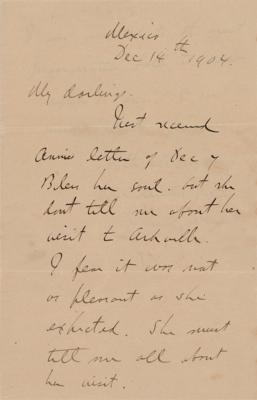 Mexico
Dec 14th 1904.
My darlings.
Just received
Annie letter of Dec 7
Bless her soul. but she
dont tell me about her
visit to Ashville.
I fear it was not
as pleasant as she
expected. She must
tell me all about
her visit.